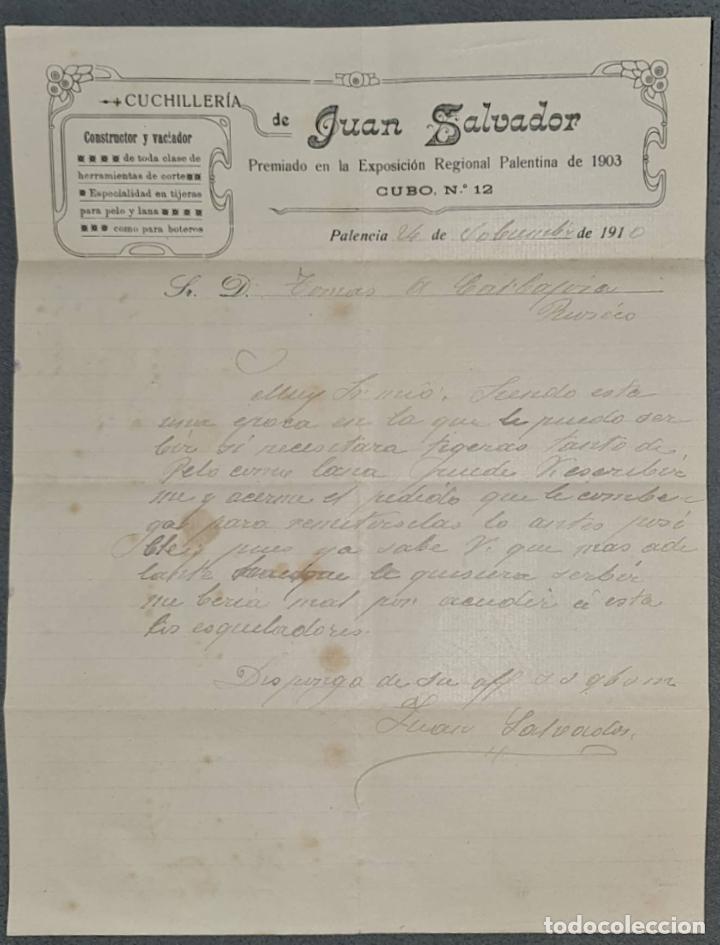 CUCHILLERÍA
de Juan Salvador
Constructor y vaciador
de toda clase de
herramientas de corte
Especialidad en tijeras
para pelo y lana
como para boteros
Premiado en la Exposición Regional Palentina de 1903
CUBO, N.º 12
Palencia 24 de de 1910
Sr. D. Tomas A
Rioseco
Muy Sr mio: Siendo esta
una epoca en la que le puedo ser
bir si necesitara tigeras tanto de
Pelo como lana puede V escribir
me y acerme el pedido que le combe
ga para remitirselas lo antes posi
ble, pues ya sabe V. que mas ade
lante aunque le quisiera serbir
me beria mal por acudir á esta
los esquiladores.
Disponga de su aff s s q b s m
Juan Salvador
todocoleccion
todocoleccion.net